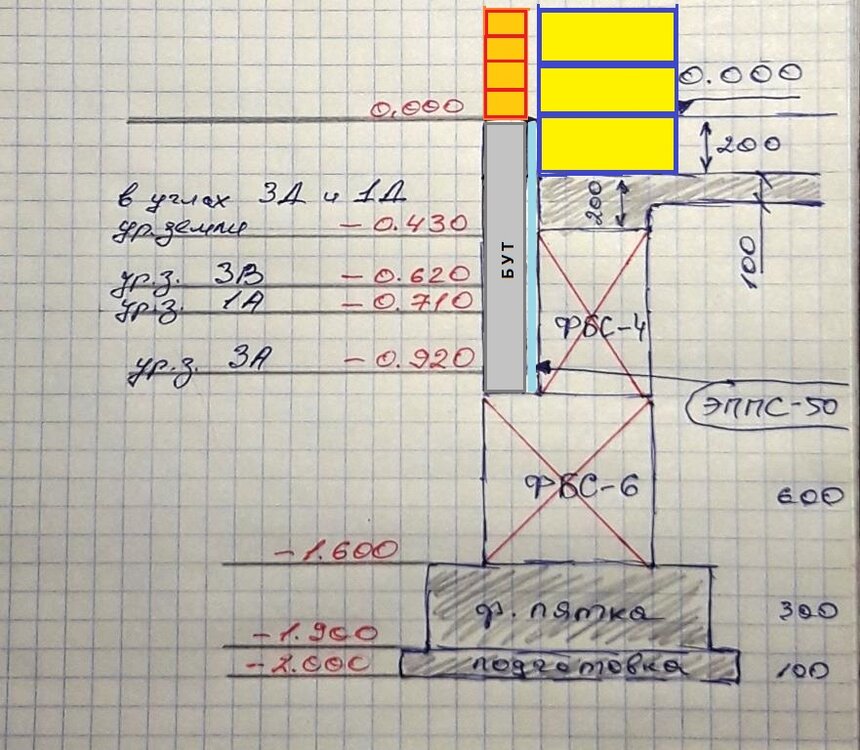 0.000
0.000
200
в углах 3Д и 1Д
ур. земли - 0.430
200
100
ур.з. 3В - 0.620
ур.з. 1А - 0.710
БУТ
ФБС-4
ур.з. 3А - 0.920
ЭППС-50
ФБС-6
600
- 1.600
ф. пятка
300
- 1.900
- 2.000
подготовка
100